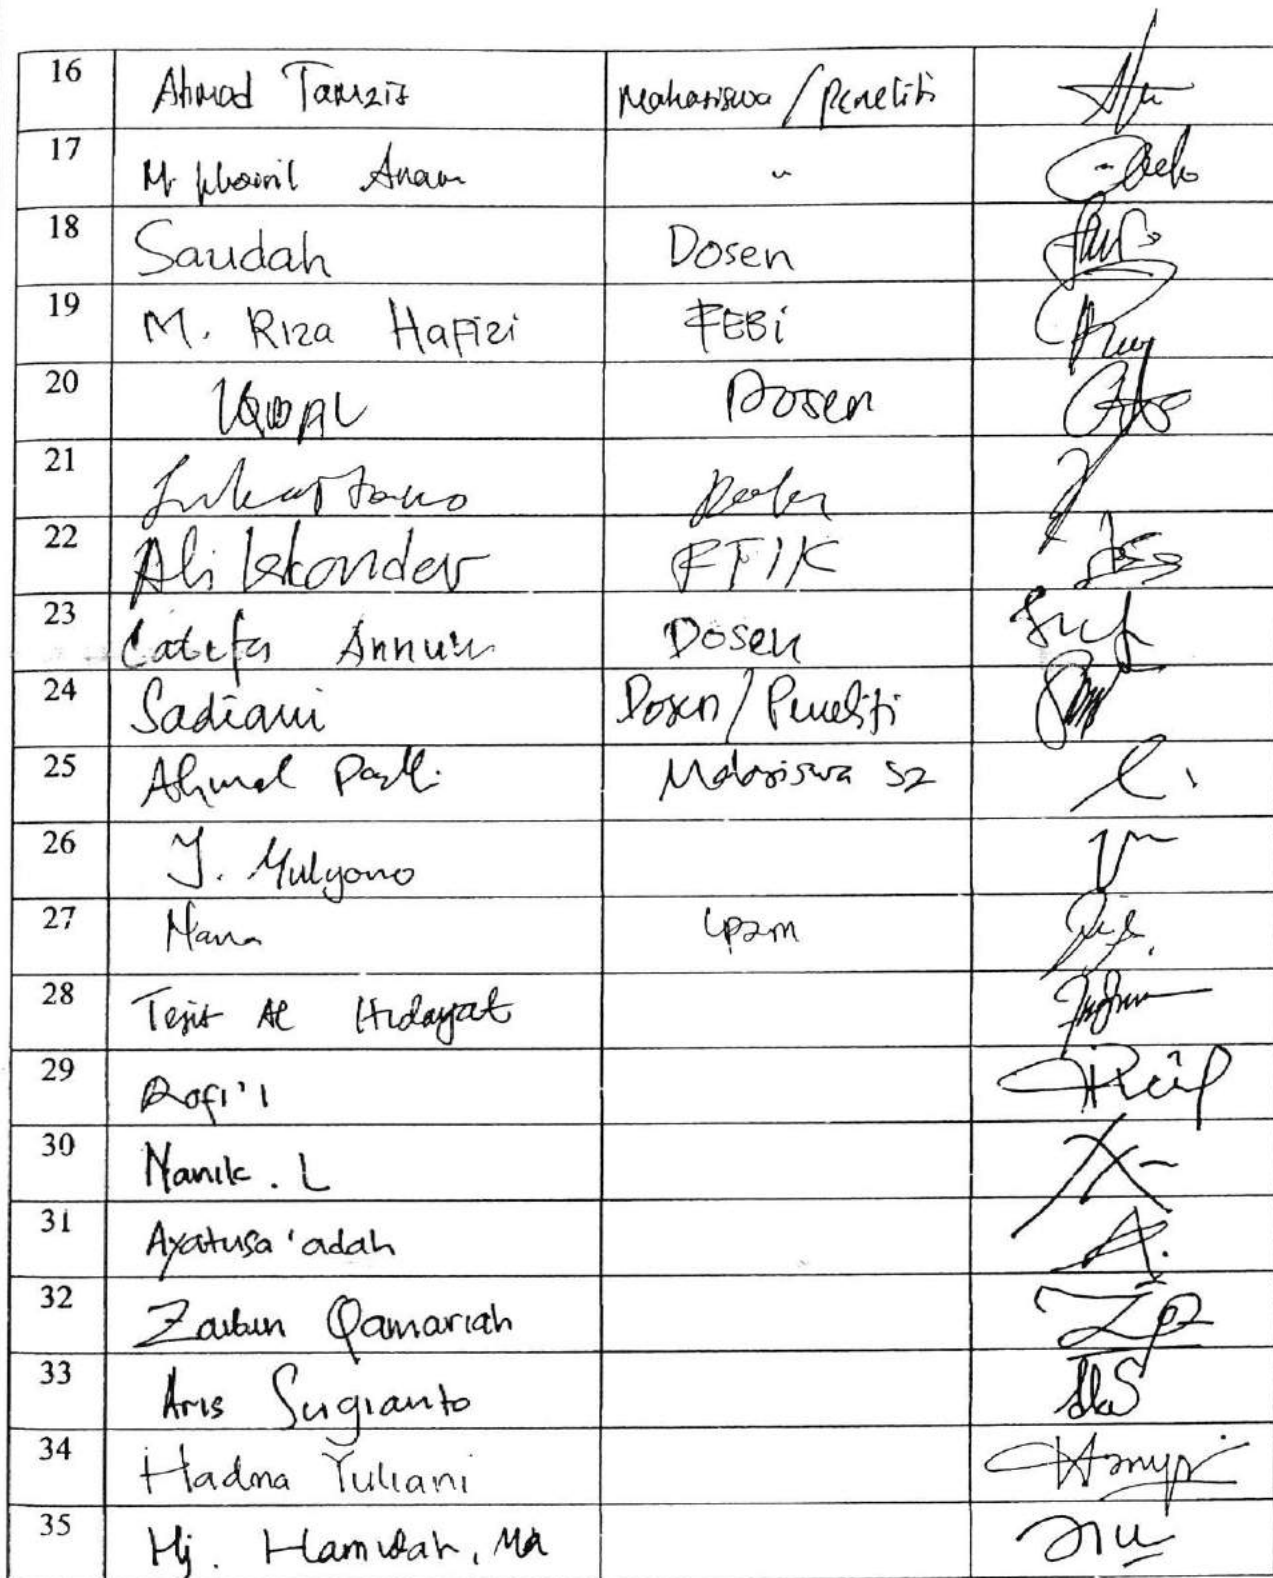 16 Ahmad Tamzis Mahasiswa / Peneliti
17 M. Khoiril Anam "
18 Saudah Dosen
19 M. Riza Hafizi FEBi
20 IQBAL Dosen
21
22 Ali Iskandar FTIK
23 Latifa Annum Dosen
24 Sadiani Dosen / Peneliti
25 Ahmad Mahasiswa S2
26 J. Mulyono
27 Nana LP2M
28 Al Hidayat
29 Rofi'i
30 Nanik . L
31 Ayatusa'adah
32 Qamariah
33 Aris Sugianto
34 Hadma Yuliani
35 Hj. Hamidah, MA